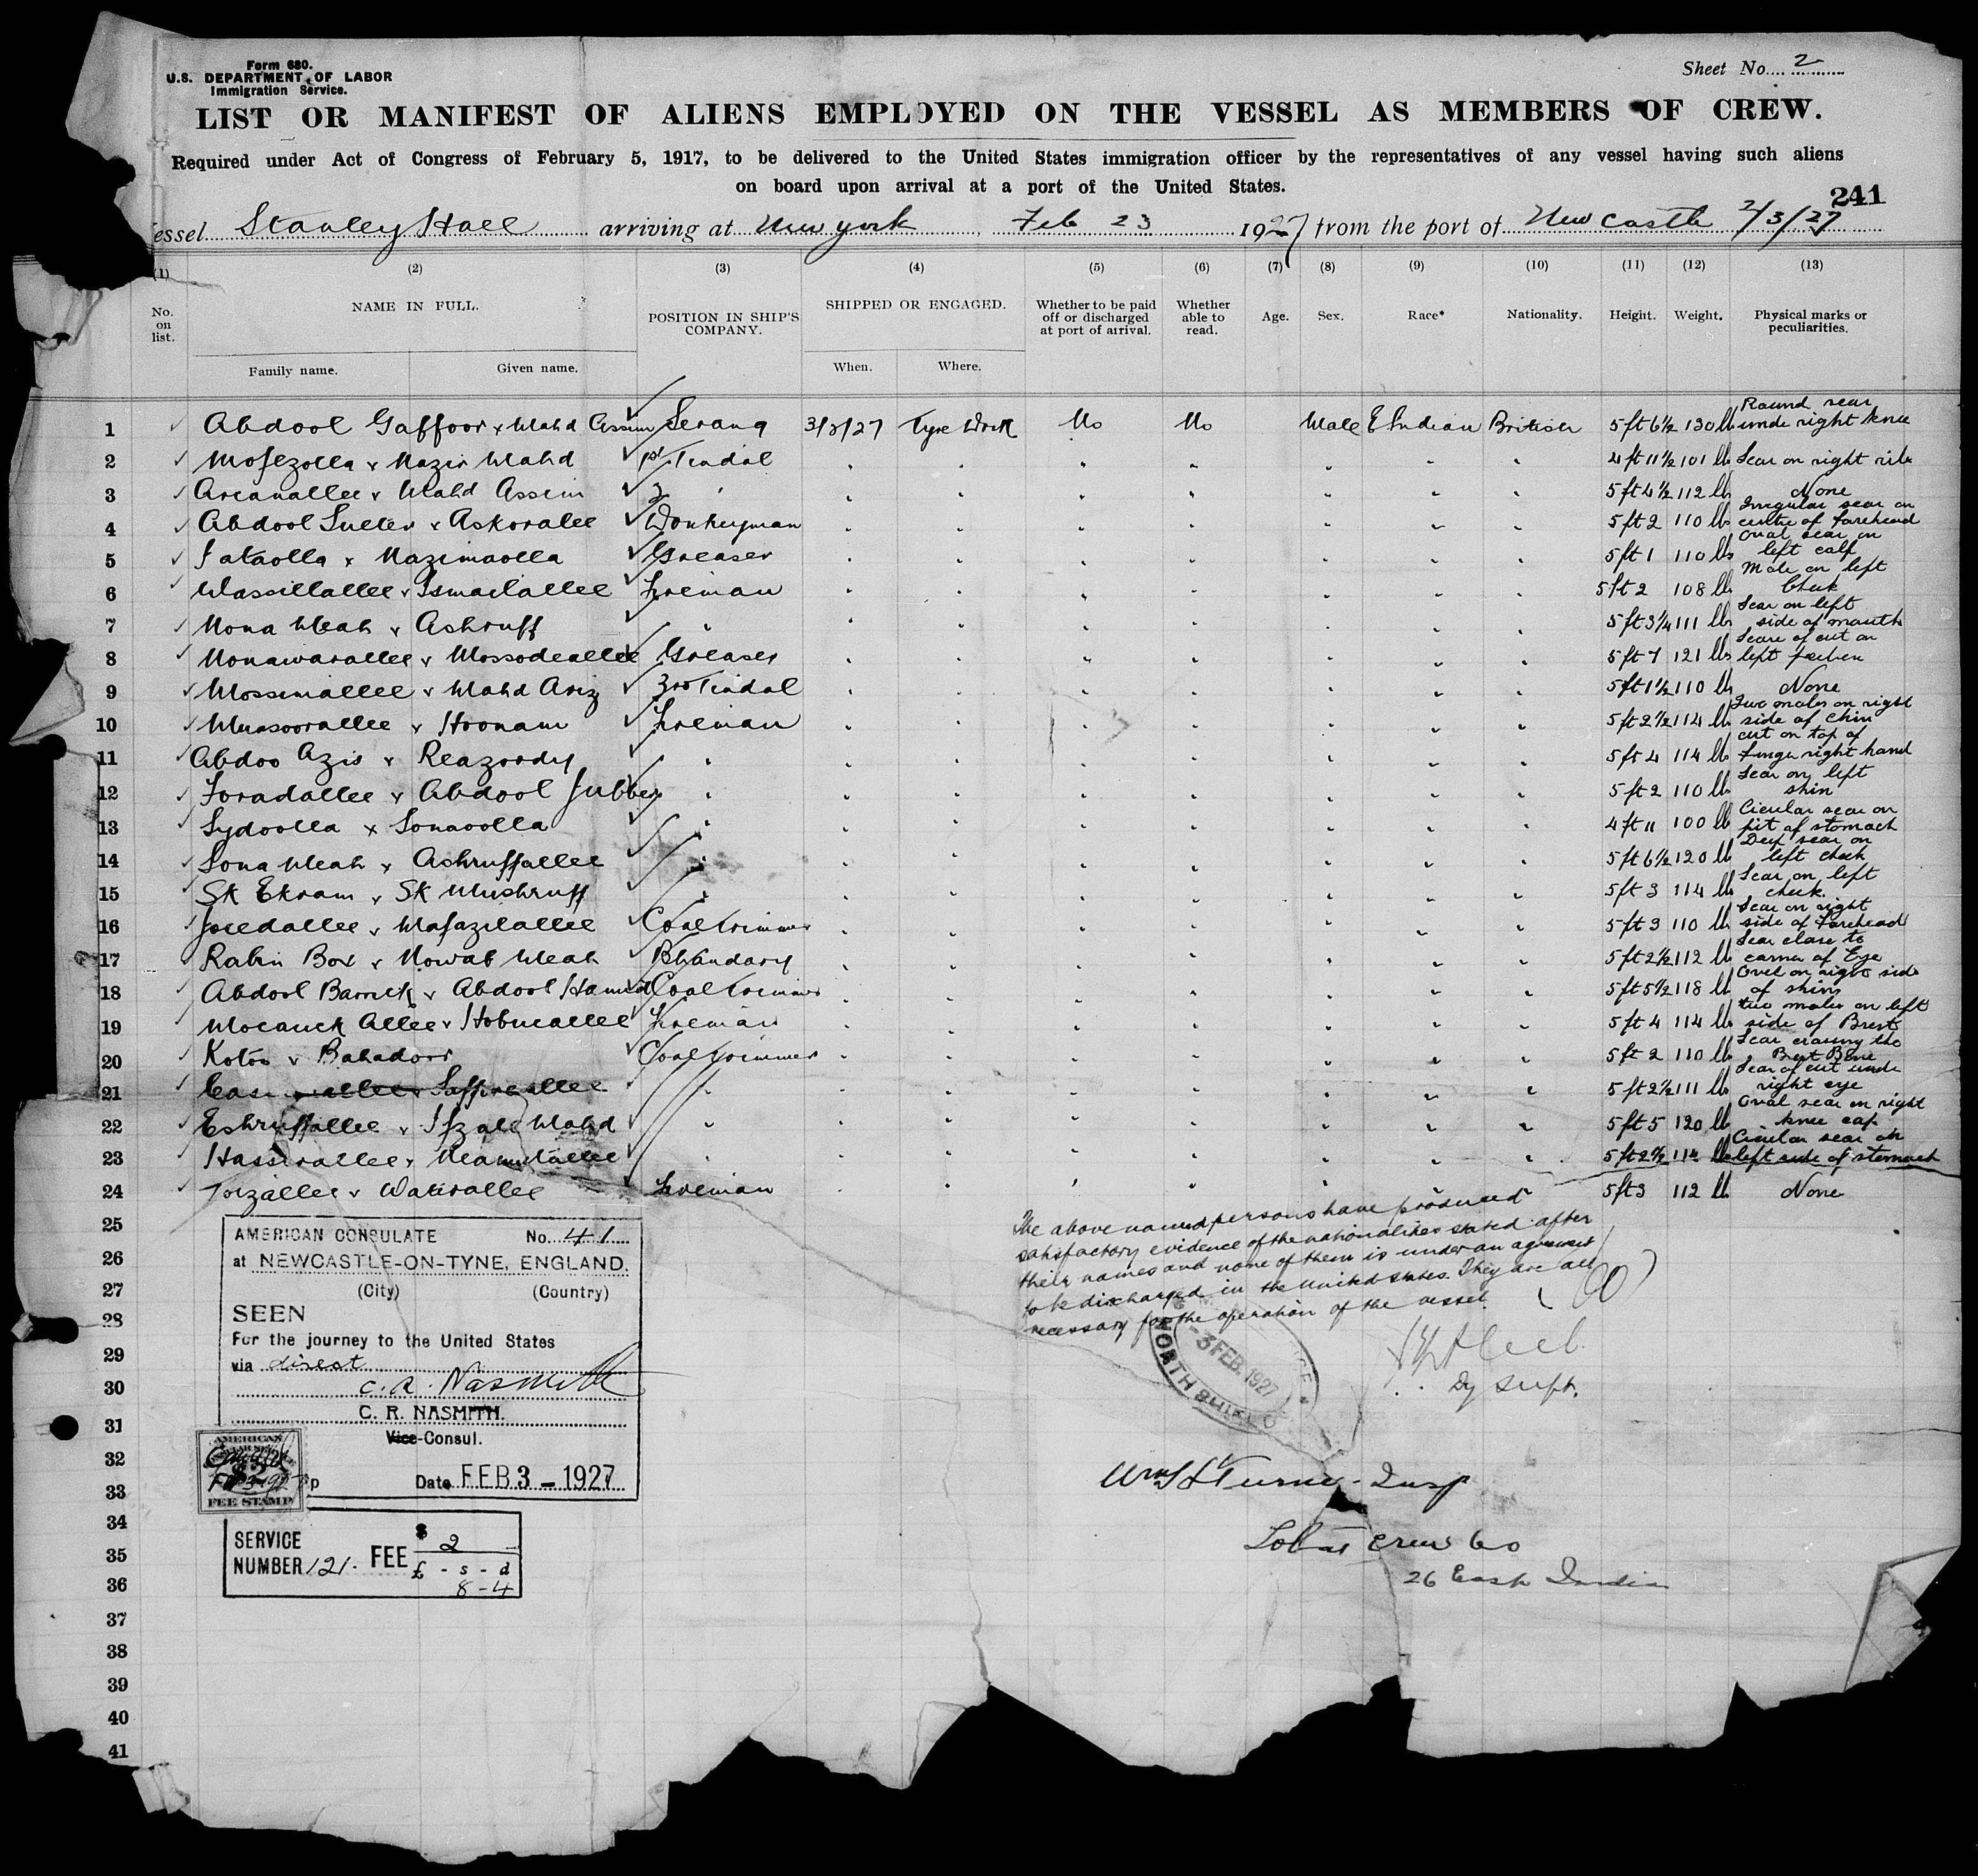 Form 680.
U.S. DEPARTMENT OF LABOR
Immigration Service.
Sheet No. 2
LIST OR MANIFEST OF ALIENS EMPLOYED ON THE VESSEL AS MEMBERS OF CREW.
Required under Act of Congress of February 5, 1917, to be delivered to the United States immigration officer by the representatives of any vessel having such aliens
on board upon arrival at a port of the United States.
241
essel Stanley Hall arriving at New york Feb 23 1927 from the port of New castle 2/3/27
(1) (2) (3) (4) (5) (6) (7) (8) (9) (10) (11) (12) (13)
No. on list. NAME IN FULL. POSITION IN SHIP'S COMPANY. SHIPPED OR ENGAGED. Whether to be paid off or discharged at port of arrival. Whether able to read. Age. Sex. Race* Nationality. Height. Weight. Physical marks or peculiarities.
Family name. Given name. When. Where.
1 Abdool Gaffoor x Mahd Assim Serang 3/2/27 Tyne Dock No No Male E Indian British 5 ft 6½ 130 lb Round scar unde right knee
2 Mofezolla x Nazir Mahd 1st Tindal " " " " " " " 4 ft 11½ 101 lb Scar on right
3 Arcanallee x Mahd Assim 2 " " " " " " " " 5 ft 4½ 112 lb None
4 Abdool x Askoralee Donkeyman " " " " " " " 5 ft 2 110 lb Irregular scar on centre of forehead
5 x Nazimaolla Greaser " " " " " " " 5 ft 1 110 lbs Oval scar on left calf
6 Wassillallee x Ismailallee Fireman " " " " " " " 5 ft 2 108 lb Mole on left Cheek
7 Mona Meah x Ashruff " " " " " " " " 5 ft 3¼ 111 lb Scar on left side of mouth
8 Monawarallee x Mossodeallee Greaser " " " " " " " 5 ft 7 121 lbs Scare of cut on left
9 Mossimallee x Mahd Ariz 3rd Tindal " " " " " " " 5 ft 1½ 110 lb None
10 Munsoorallee x Hoonam Fireman " " " " " " " 5 ft 2½ 114 lb Two moles on right side of chin
11 Abdoo Azis x Reazoody " " " " " " " " 5 ft 4 114 lb cut on top of finger right hand
12 Foradallee x Abdool Jubber " " " " " " " " 5 ft 2 110 lb Scar on left shin
13 Sydoolla x Sonaoolla " " " " " " " " 4 ft 11 100 lb Circular scar on pit of stomach
14 Sona Meah x Ashruffallee " " " " " " " " 5 ft 6½ 120 lb Deep scar on left cheek
15 Sk Ekram x Sk Mushruff " " " " " " " " 5 ft 3 114 lb Scar on left cheek.
16 Joedallee x Mafazilallee Coal trimmer " " " " " " " 5 ft 3 110 lb Scar on right side of Forehead
17 Rabin Box x Nowab Meah Bhandary " " " " " " " 5 ft 2½ 112 lb Scar close to corner of Eye
18 Abdool Barrick x Abdool Hamid Coal trimmer " " " " " " " 5 ft 5½ 118 lb on right side of shin
19 Mocanck Allee x Hobucallee Fireman " " " " " " " 5 ft 4 114 lb two moles on left side of Brest
20 Kotoo x Bahadoor Coal trimmer " " " " " " " 5 ft 2 110 lb Scar crossing the Brest Bone
21 Saffreallee " " " " " " " " 5 ft 2½ 111 lb Scar of cut under right eye
22 Eshruffallee x Ifzale Mahd " " " " " " " " 5 ft 5 120 lb Oval scar on right knee cap
23 Hassirallee x " " " " " " " " 5 ft 2½ 114 lb Circular scar on left side of stomach
24 Torzallee x Wakirallee Fireman " " " " " " " 5 ft 3 112 lb None
25
26
27
28
29
30
31
32
33
34
35
36
37
38
39
40
41
AMERICAN CONSULATE No. 41
at NEWCASTLE-ON-TYNE, ENGLAND.
(City) (Country)
SEEN
For the journey to the United States
via direct
C. R. Nasmith
C. R. NASMITH.
Vice-Consul.
Date FEB 3 - 1927
AMERICAN
FEE STAMP
SERVICE NUMBER 121. FEE $ 2
£ - s - d
8 - 4
The above named persons have produced
satisfactory evidence of the nationalities stated after
their names and none of them is under an agreement
to be discharged in the United States. They are all
necessary for the operation of the vessel.
- 3 FEB. 1927
NORTH SHIELDS
Dy Supt.
Wm S Turner - Insp
Total crew 60
26 East Indian